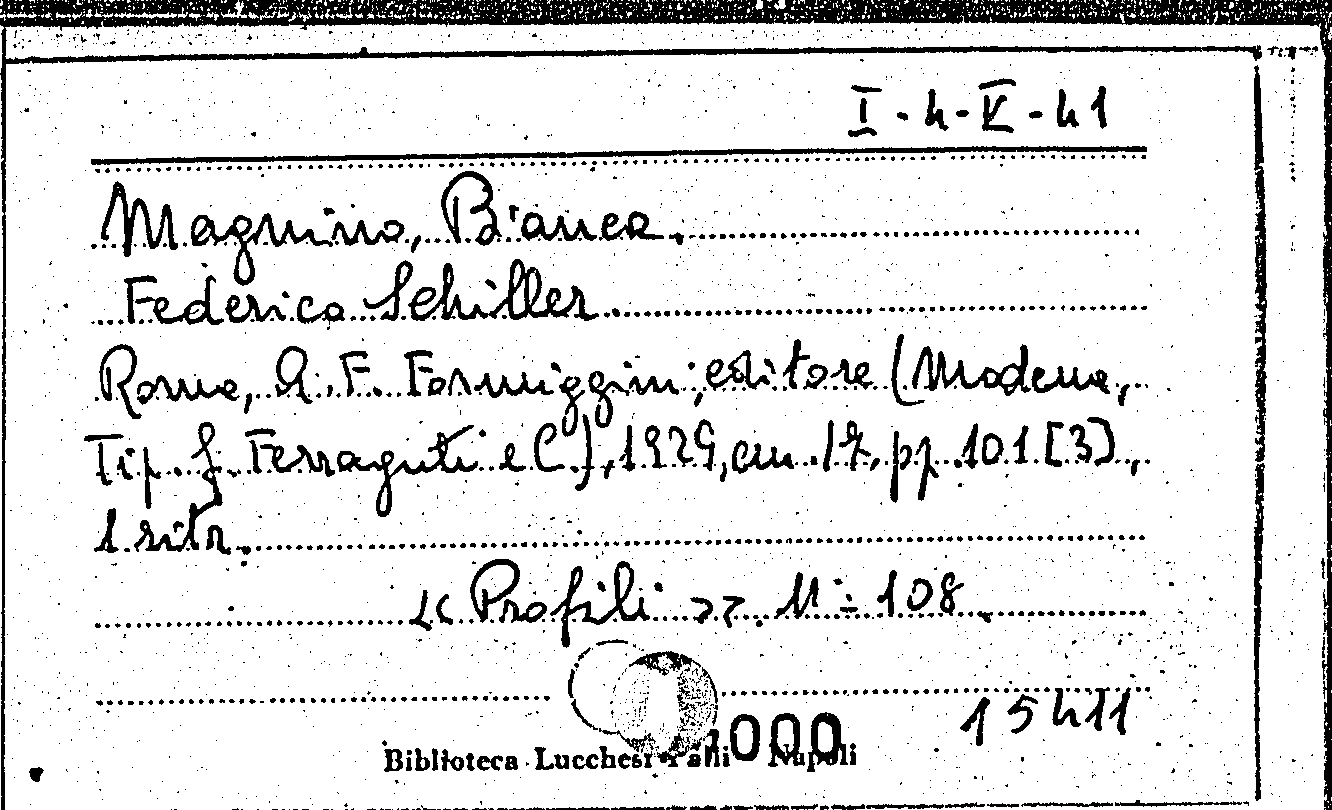 I-4-V-41
Magnino, Bianca.
Federico Schiller.
Roma, A. F. Formiggini, editore (Modena,
Tip. G. Ferraguti e C.), 1929, cm. 17, pp. 101 [3],
1 ritr.
<< Profili >>. N° 108.
15411
000
Biblioteca Lucchesi Palli Napoli